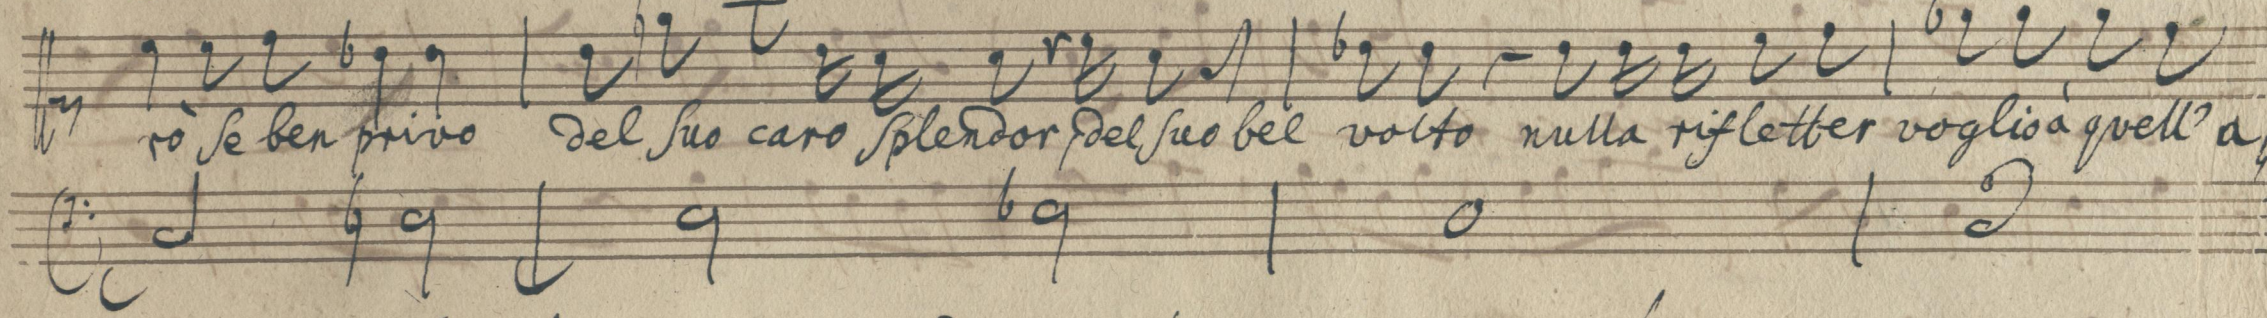 rò se ben privo del suo caro splendor, del suo bel volto nulla rifletter voglio à quell'